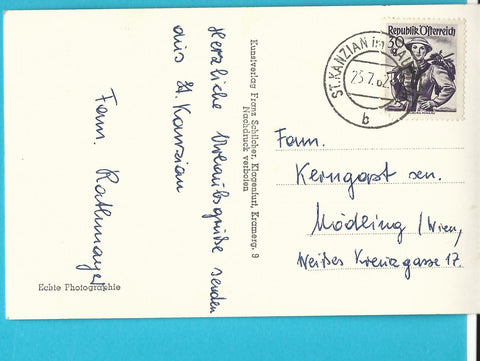 Herzliche Urlaubsgrüße senden
aus St. Kanzian
Fam. Rathmayer
Echte Photographie
Kunstverlag Franz Schilcher, Klagenfurt, Kramerg. 9
Nachdruck verboten
Republik Österreich
ST. KANZIAN
23.7.62
b
Fam.
Kerngast sen.
Mödling / Wien,
Weißes Kreuzgasse 17.